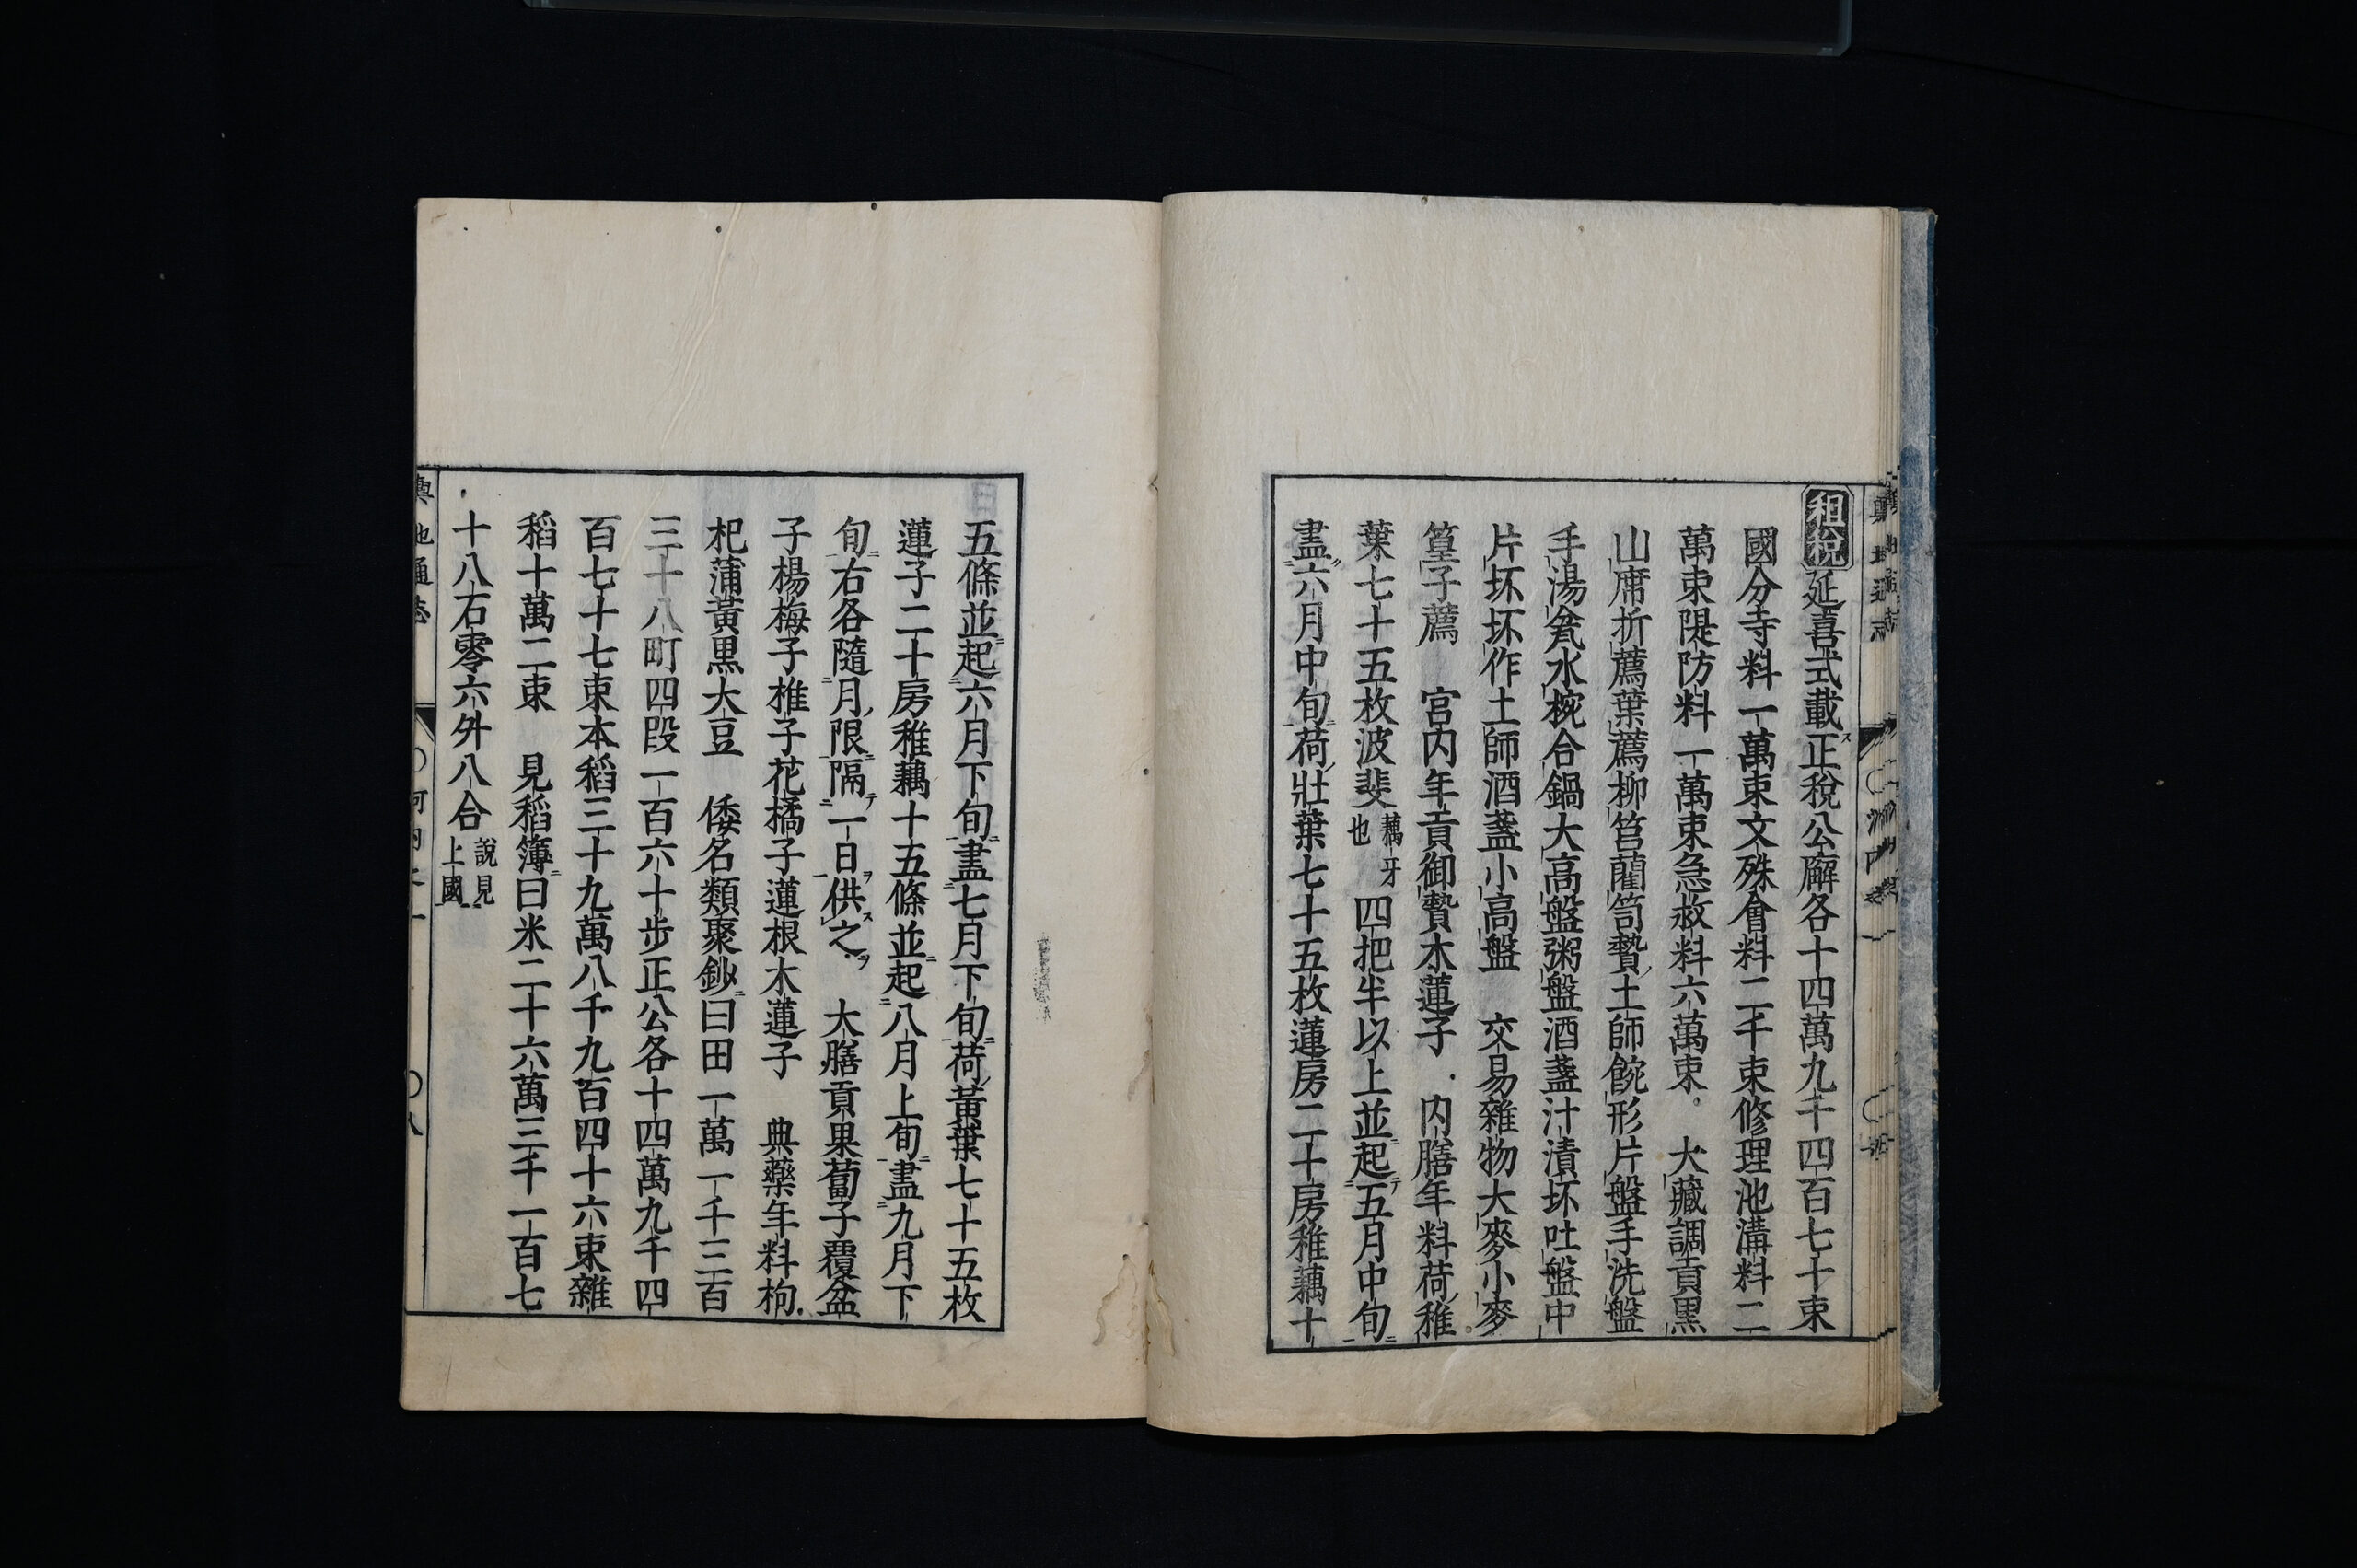 租税延喜式載正税公廨各十四萬九千四百七十束
國分寺料一萬束文殊會料二千束修理池溝料二
萬束隄防料一萬束急救料六萬束。大藏調貢黒
山席折薦葉薦柳筥藺笥贄土師鋺形片盤手洗盤
手湯瓫水椀合鍋大高盤粥盤酒盞汁漬坏吐盤中
片坏坏作土師酒盞小高盤 交易雜物大麥小麥
篁子薦 宮内年貢御贄木蓮子 内膳年料荷稚
葉七十五枚波斐藕牙也四把半以上並起五月中旬
盡六月中旬荷壯葉七十五枚蓮房二十房稚藕十
五條並起六月下旬盡七月下旬荷黃葉七十五枚
蓮子二十房稚藕十五條並起八月上旬盡九月下
旬右各隨月限隔一日供之 大膳貢果蔔子覆盆
子楊梅子椎子花橘子蓮根木蓮子 典藥年料枸
杞蒲黃黒大豆 倭名類聚鈔曰田一萬一千三百
三十八町四段一百六十歩正公各十四萬九千四
百七十七束本稻三十九萬八千九百四十六束雜
稻十萬二束 見稻簿曰米二十六萬三千一百七
十八石零六舛八合說見上國